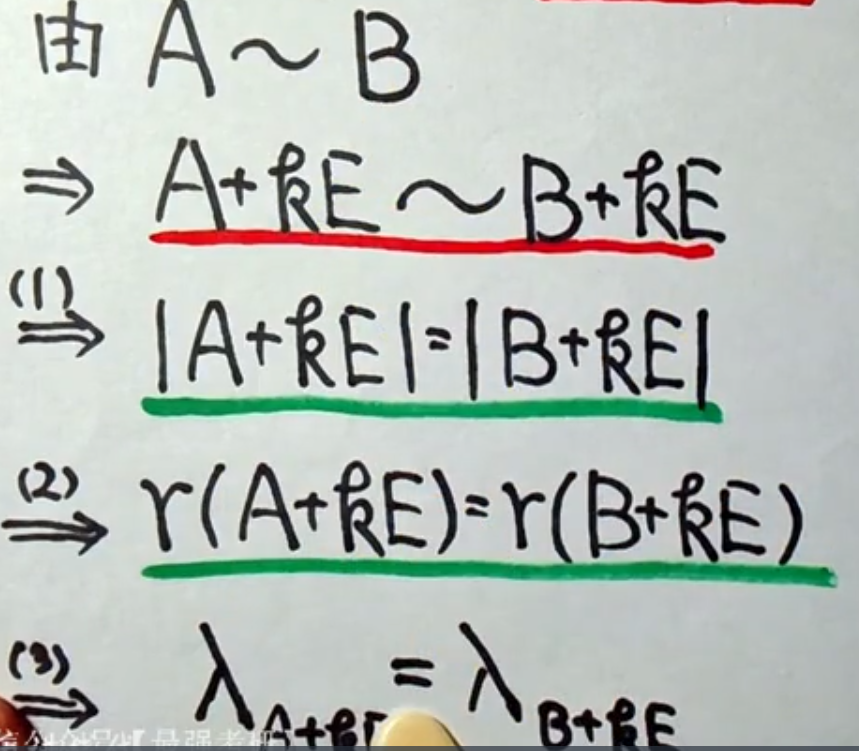 由 A ~ B
⇒ A+kE ~ B+kE
(1) ⇒ |A+kE|=|B+kE|
(2) ⇒ r(A+kE)=r(B+kE)
(3) ⇒ λ_{A+kE} = λ_{B+kE}